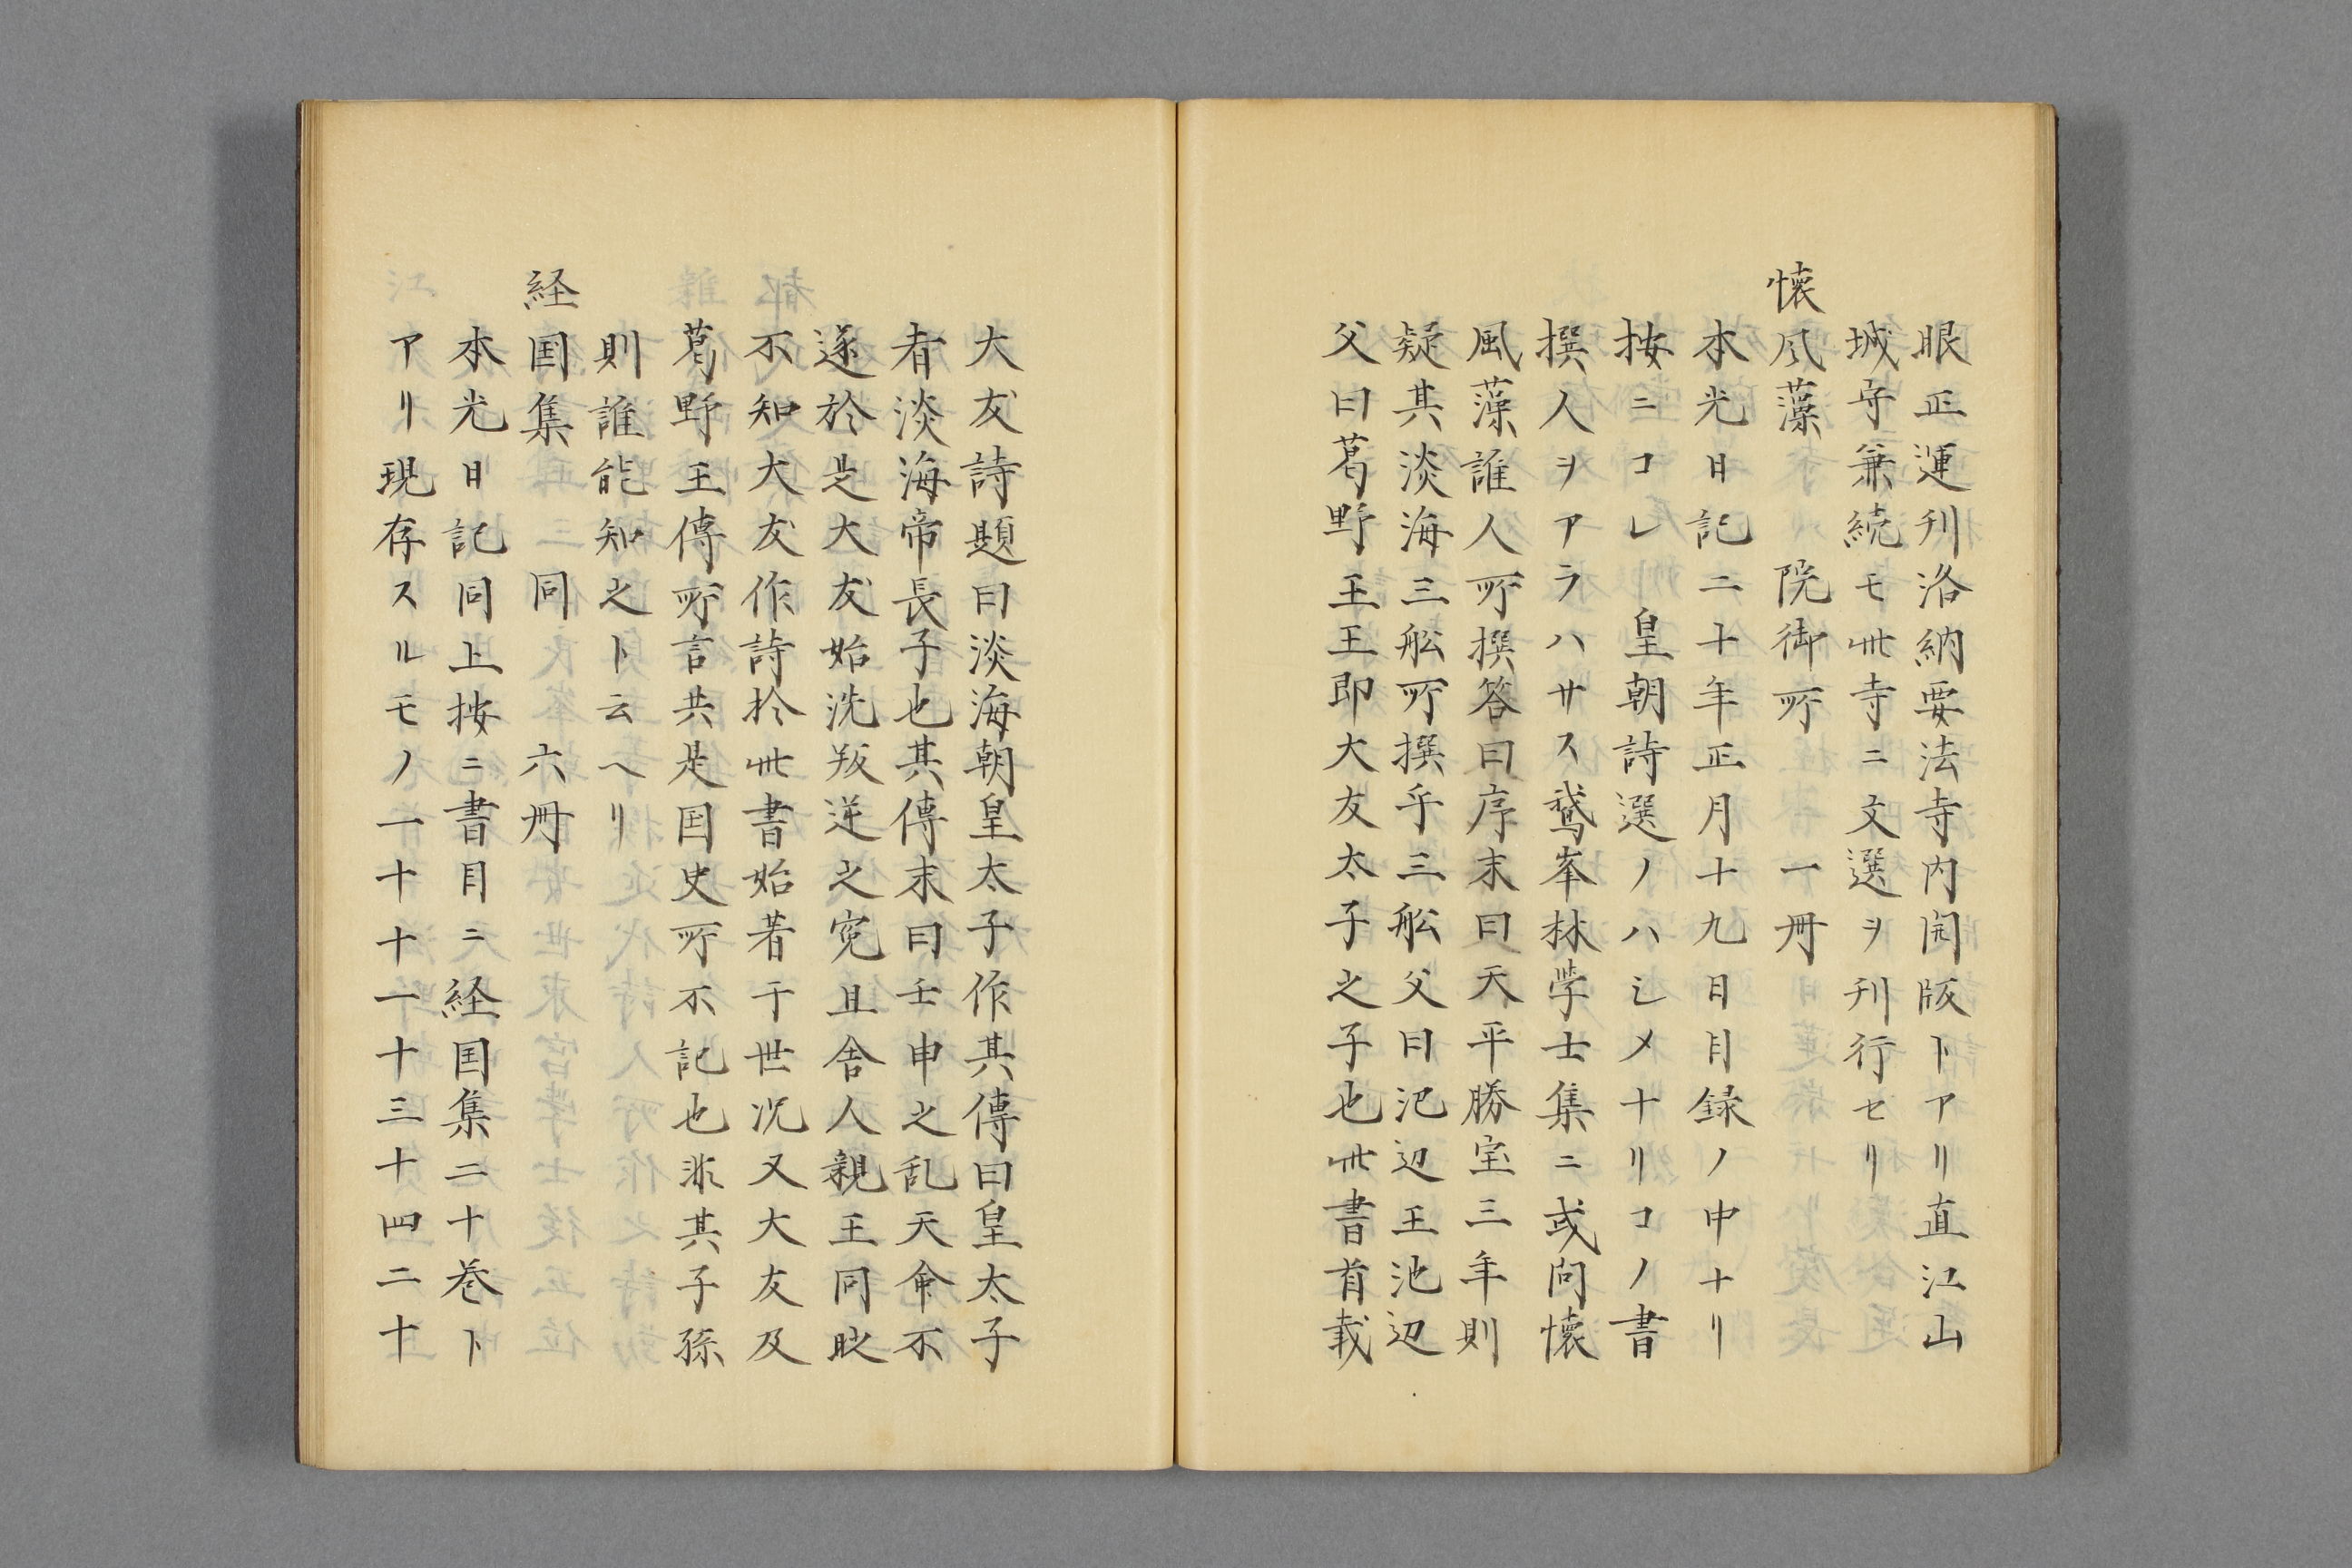 眼正運刊洛納要法寺内開版トアリ直江山
城守兼続モ此寺ニ文選ヲ刊行セリ
懐风藻　院御所　一冊
本光日記二十年正月十九日目録ノ中ナリ
按ニコレ　皇朝詩選ノハシメナリコノ書
撰人ヲアラハサス鵞峯林学士集ニ或问懐
風藻誰人所撰答曰序末曰天平勝宝三年則
疑其淡海三舩所撰乎三舩父曰池辺王池辺
父曰葛野王王即大友太子之子也此書首載
大友詩題曰淡海朝皇太子作其傳曰皇太子
者淡海帝長子也其傳末曰壬申之乱天命不
遂於是大友始洗叛逆之寃且舎人親王同時
不知大友作詩於此書始著于世况又大友及
葛野王傳所言共是国史所不記也非其子孫
則誰能知之ト云ヘリ
経国集　同　六冊
本光日記同上按ニ書目ニ経国集二十巻ト
アリ現存スルモノ一十十一十三十四二十